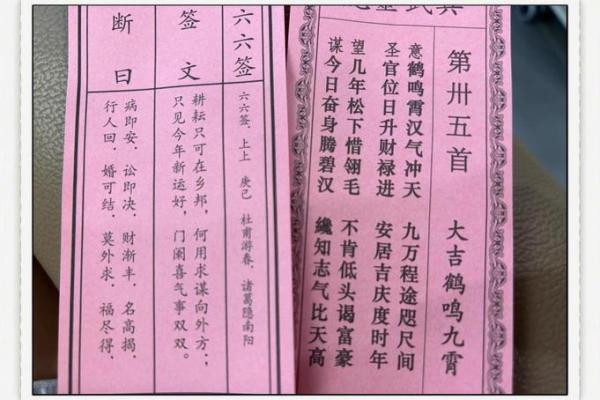 第卅五首 大吉鹤鸣九霄
意鹤鸣霄汉气冲天 九万程途咫尺间
圣官位日升财禄进 安居吉庆度时年
望几年松下惜翎毛 不肯低头谒富豪
谋今日奋身腾碧汉 纔知志气比天高
六六签
六六签，上上 庚己 杜甫游春，诸葛隐南阳
签文
耕耘只可在乡邦，何用求谋向外方；
只见今年新运好，门阑喜气事双双。
断曰
病即安，讼即决，财渐丰，名高揭，
行人回，婚可结，莫外求，福尽得，